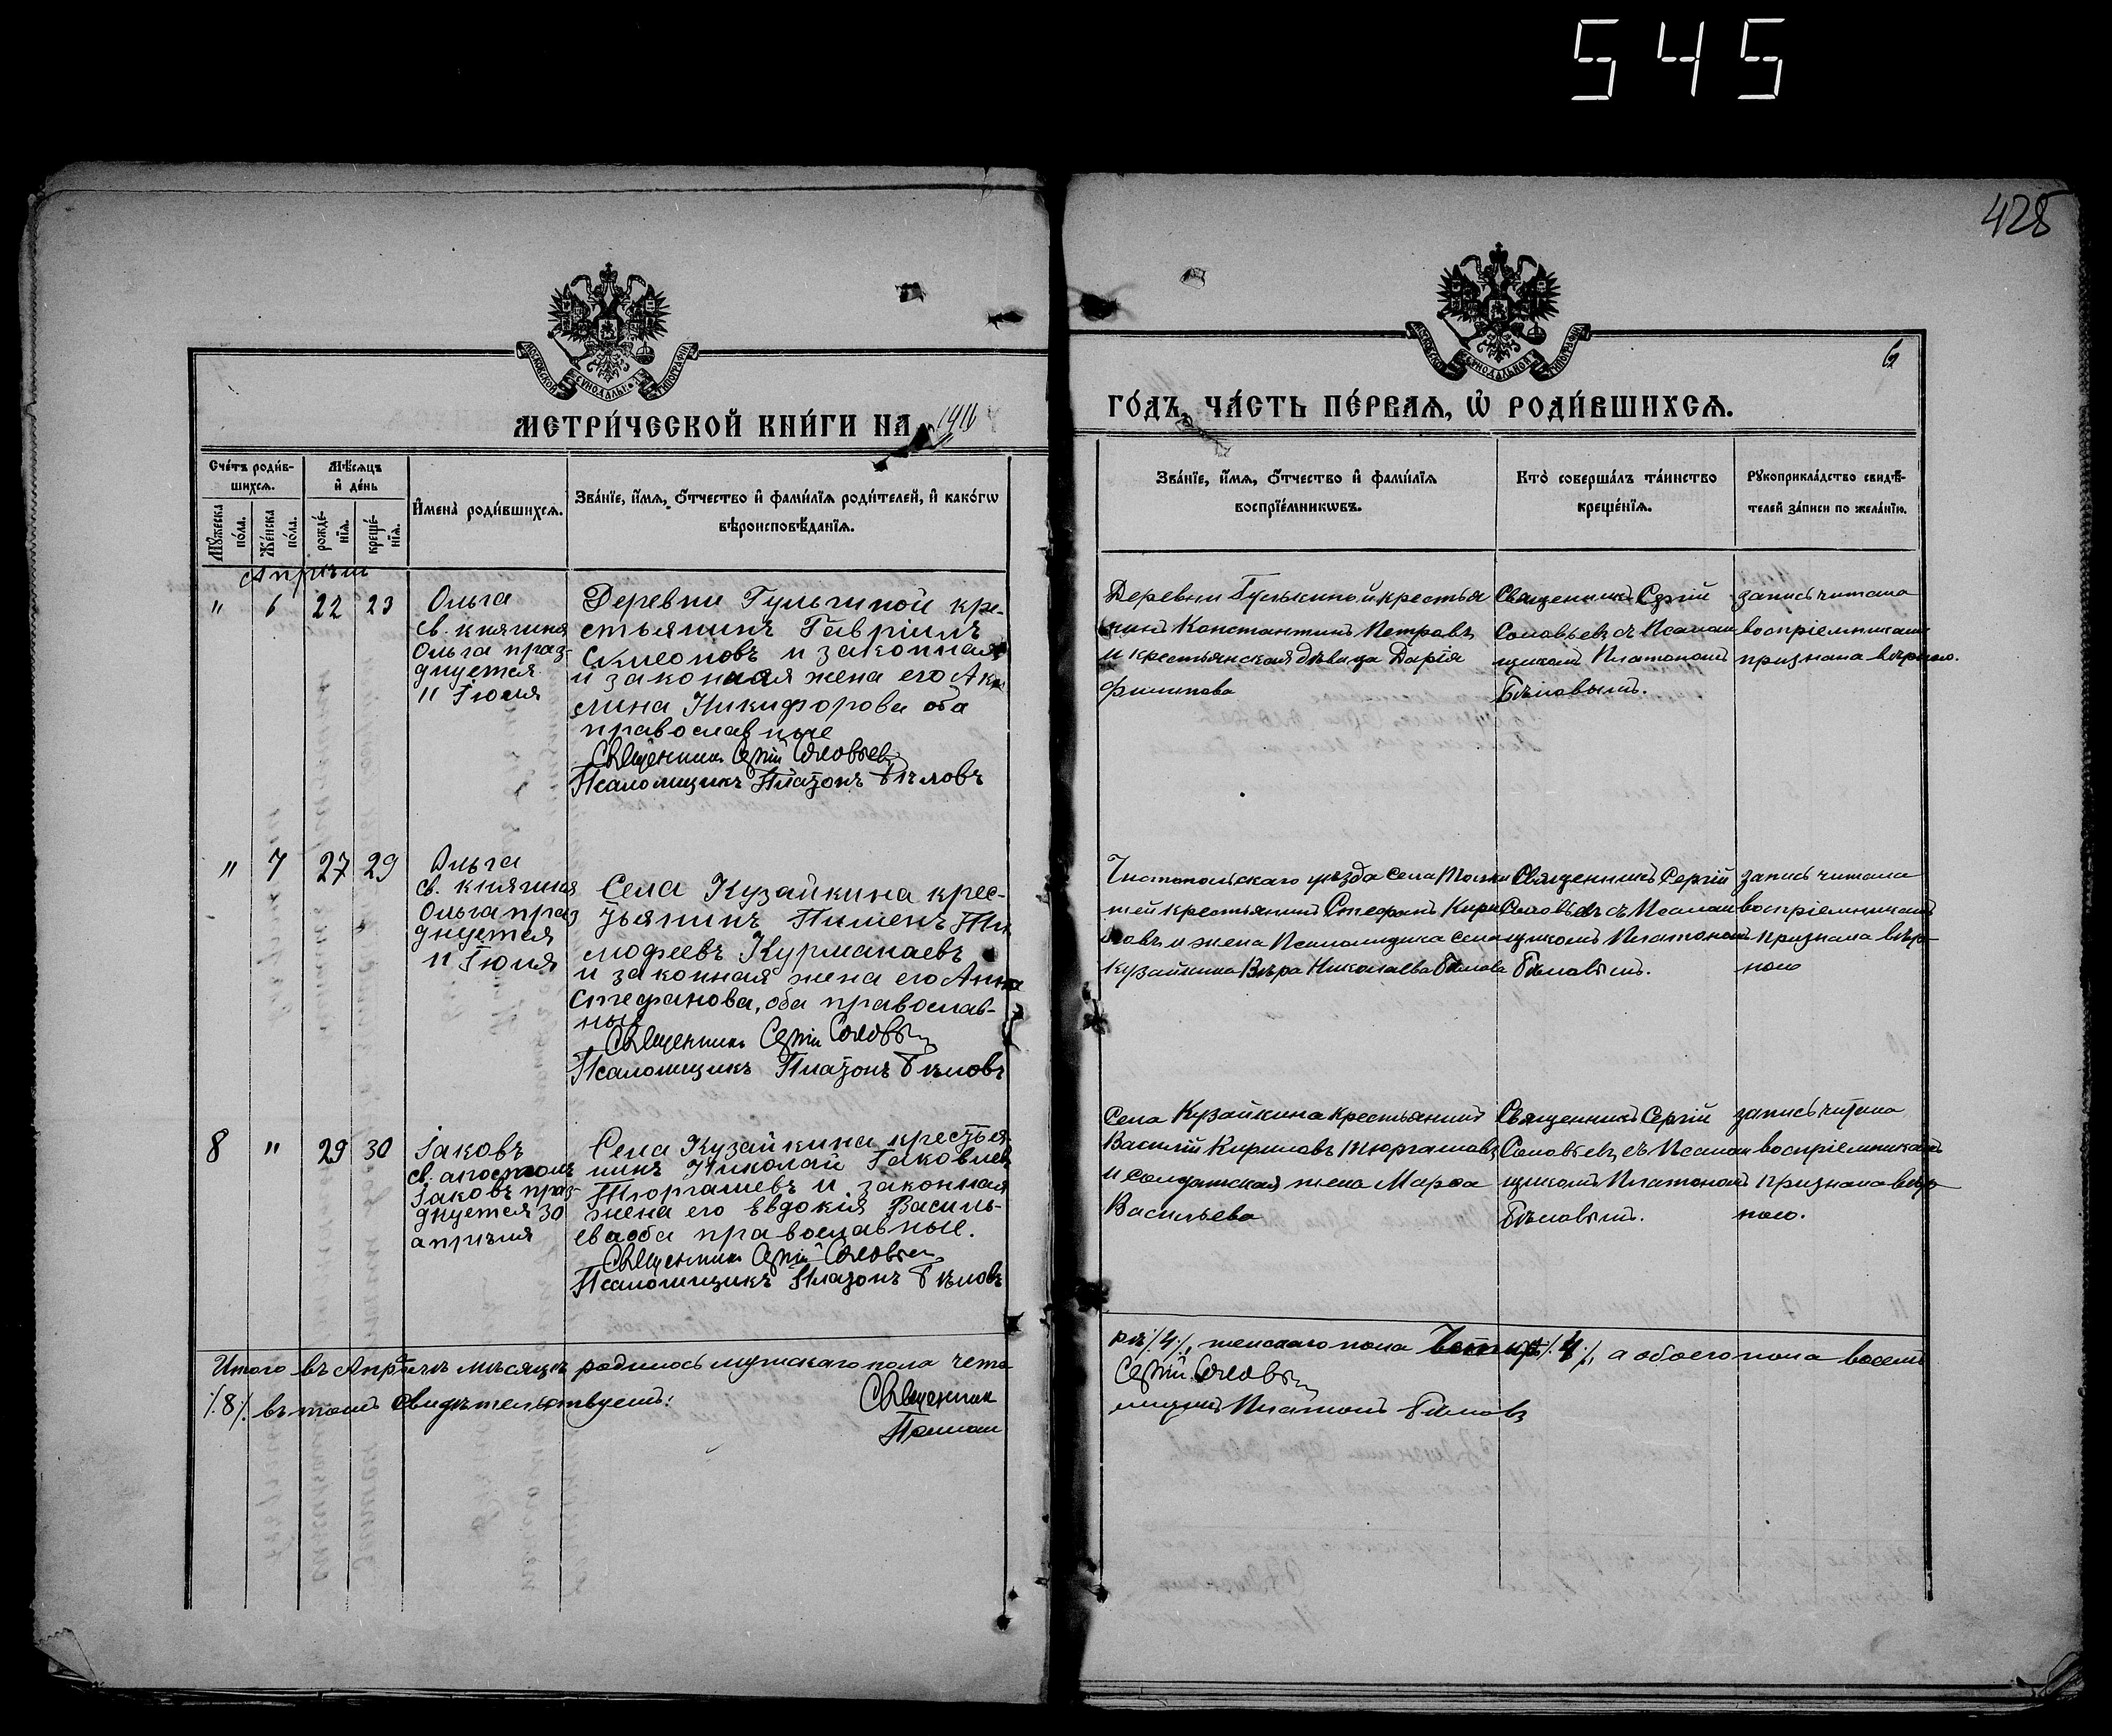 545
428
МОСКОВСКОЙ СѴНОДАЛЬНОЙ ТИПОГРАФІИ
МОСКОВСКОЙ СѴНОДАЛЬНОЙ ТИПОГРАФІИ
6
МЕТРИ́ЧЕСКОЙ КНИ́ГИ НА 1916
ГО́ДЪ, ЧА́СТЬ ПЕ́РВАѦ, Ѡ҆ РОДИ́ВШИХСѦ.
Сче́тъ роди́в-
шихсѧ.
Мѣ́сѧцъ
и҆ де́нь
Мꙋ́жеска
по́ла.
Же́нска
по́ла.
рожде́-
нїѧ.
креще́-
нїѧ.
И҆мена̀ роди́вшихсѧ.
Зва́нїе, и҆́мѧ, ѻ҆́тчество и҆ фами́лїѧ роди́телей, и҆ како́гѡ
вѣроисповѣ́данїѧ.
Зва́нїе, и҆́мѧ, ѻ҆́тчество и҆ фами́лїѧ
воспрїе́мникѡвъ.
Кто̀ соверша́лъ та́инство
креще́нїѧ.
Рꙋкоприкла́дство свидѣ́-
телей за́писи по жела́нїю.
Апрѣль
" 6 22 23
Ольга
св. княгиня
Ольга праз-
днуется
11 Іюля
Деревни Гулькиной кре-
стьянинъ Гавріилъ
Симеоновъ и законная
и законная жена его Аки
лина Никифорова оба
православные
Священникъ Сергій Соловьевъ
Псаломщикъ Платонъ Бѣловъ
Деревни Гулькиной крестья
нинъ Константинъ Петровъ
и крестьянская дѣвица Дарія
Филипова
Священникъ Сергій
Соловьевъ съ Псалом
щикомъ Платономъ
Бѣловымъ.
запись читана
воспріемниками
признана вѣрною.
" 7 27 29
Ольга
св. княгиня
Ольга праз
днуется
11 Іюля
Села Кузайкина крес-
тьянинъ Пименъ Ти
мофеевъ Курмакаевъ
и законная жена его Анна
Стефанова, оба православ-
ные
Священникъ Сергій Соловьевъ
Псаломщикъ Платонъ Бѣловъ
Чистопольскаго уѣзда села
тей крестьянинъ Стефанъ Кири
ловъ и жена Псаломщика села
Кузайкина Вѣра Николаева Бѣлова
Священникъ Сергій
Соловьевъ съ Псалом
щикомъ Платономъ
Бѣловымъ.
запись читана
воспріемниками
признана вѣр-
ною
8 " 29 30
Іаковъ
св. апостолъ
Іаковъ праз-
днуется 30
апрѣля
Села Кузайкина крестья-
нинъ Николай Іаковлевъ
Тюргашевъ и законная
жена его Евдокія Василь-
ева оба православные.
Священникъ Сергій Соловьевъ
Псаломщикъ Платонъ Бѣловъ
Села Кузайкина крестьянинъ
Василій Кириловъ Тюргашевъ
и солдатская жена Марѳа
Васильева
Священникъ Сергій
Соловьевъ съ Псалом
щикомъ Платономъ
Бѣловымъ.
запись читана
воспріемниками
признана вѣр
ною.
Итого въ Апрѣлѣ мѣсяцѣ родилось мужскаго пола четы
ре /.4./, женскаго пола Четыре /.4./, а обоего пола восемь
/.8./. въ томъ свидѣтельствуемъ:
Священник
Сергій Соловьевъ
Псалом
щикъ Платонъ Бѣловъ